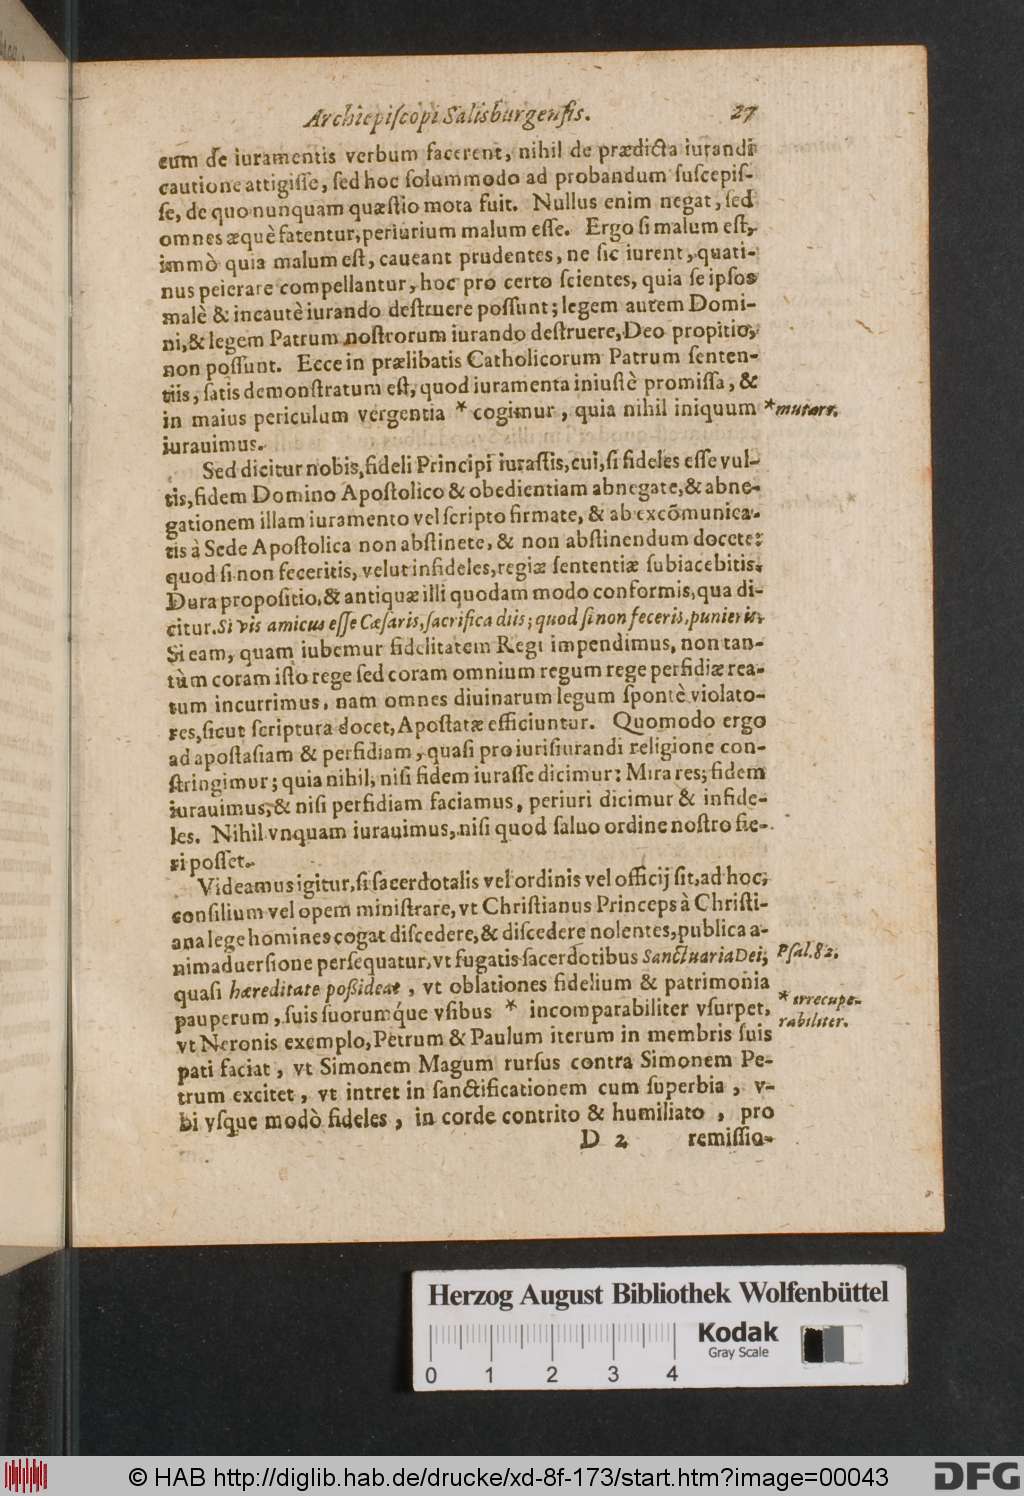 Archiepiſcopi Salisburgenſis. 27
cum de iuramentis verbum facerent, nihil de prædicta iurandi
cautione attigiſſe, ſed hoc ſolummodo ad probandum ſuſcepiſ-
ſe, de quo nunquam quæſtio mota fuit. Nullus enim negat, ſed
omnes æquè fatentur, periurium malum eſſe. Ergo ſi malum eſt,
immò quia malum eſt, caueant prudentes, ne ſic iurent, quati-
nus peierare compellantur, hoc pro certo ſcientes, quia ſe ipſos
malè & incautè iurando deſtruere poſſunt; legem autem Domi-
ni, & legem Patrum noſtrorum iurando deſtruere, Deo propitio,
non poſſunt. Ecce in prælibatis Catholicorum Patrum ſenten-
tiis, ſatis demonſtratum eſt, quod iuramenta iniuſtè promiſſa, &
in maius periculum vergentia * cogimur, quia nihil iniquum *mutare.
iurauimus.
Sed dicitur nobis, fideli Principi iuraſtis, cui, ſi fideles eſſe vul-
tis, fidem Domino Apoſtolico & obedientiam abnegate, & abne-
gationem illam iuramento vel ſcripto firmate, & ab excõmunica-
tis à Sede Apoſtolica non abſtinete, & non abſtinendum docete:
quod ſi non feceritis, velut infideles, regiæ ſententiæ ſubiacebitis.
Dura propoſitio, & antiquæ illi quodam modo conformis, qua di-
citur. Si vis amicus eſſe Cæſaris, ſacrifica diis; quod ſi non feceris, punieris.
Si eam, quam iubemur fidelitatem Regi impendimus, non tan-
tùm coram iſto rege ſed coram omnium regum rege perfidiæ rea-
tum incurrimus, nam omnes diuinarum legum ſpontè violato-
res, ſicut ſcriptura docet, Apoſtatæ efficiuntur. Quomodo ergo
ad apoſtaſiam & perfidiam, quaſi pro iuriſiurandi religione con-
ſtringimur; quia nihil, niſi fidem iuraſſe dicimur: Mira res; fidem
iurauimus, & niſi perfidiam faciamus, periuri dicimur & infide-
les. Nihil vnquam iurauimus, niſi quod ſaluo ordine noſtro fie-
ri poſſet.
Videamus igitur, ſi ſacerdotalis vel ordinis vel officij ſit, ad hoc,
conſilium vel opem miniſtrare, vt Chriſtianus Princeps à Chriſti-
ana lege homines cogat diſcedere, & diſcedere nolentes, publica a-
nimaduerſione perſequatur, vt fugatis ſacerdotibus Sanctuaria Dei, Pſal. 82.
quaſi hæreditate poßideat, vt oblationes fidelium & patrimonia
pauperum, ſuis ſuorumq́ue vſibus * incomparabiliter vſurpet, * irrecupe-
rabiliter.
vt Neronis exemplo, Petrum & Paulum iterum in membris ſuis
pati faciat, vt Simonem Magum rurſus contra Simonem Pe-
trum excitet, vt intret in ſanctificationem cum ſuperbia, v-
bi vſque modò fideles, in corde contrito & humiliato, pro
D 2 remiſſio-
Herzog August Bibliothek Wolfenbüttel
Kodak
Gray Scale
0 1 2 3 4
© HAB http://diglib.hab.de/drucke/xd-8f-173/start.htm?image=00043
DFG